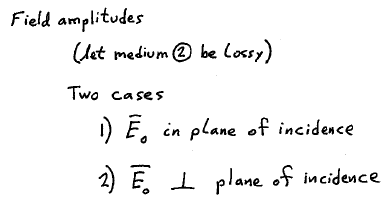 Field amplitudes
(let medium ② be lossy)
Two cases
1) E̅₀ in plane of incidence
2) E̅₀ ⊥ plane of incidence